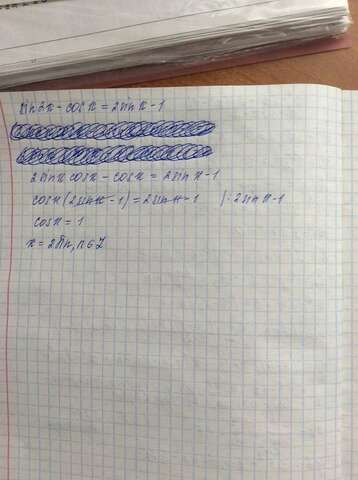 sin2x - cosx = 2sinx - 1
2sinx cosx - cosx = 2sinx - 1
cosx(2sinx - 1) = 2sinx - 1 |: 2sinx - 1
cosx = 1
x = 2πn, n∈Z